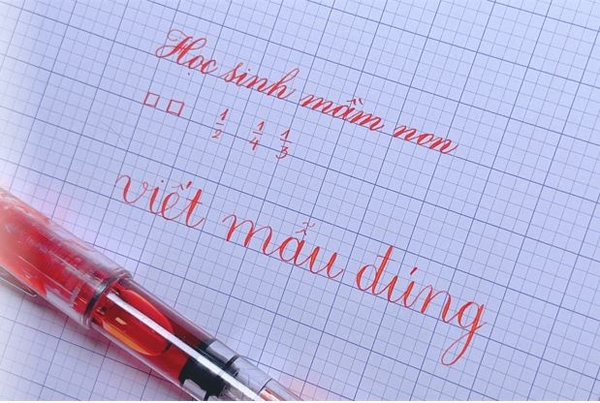 Học sinh mầm non
□ □ 1/2 1/4 1/3
viết mẫu đúng